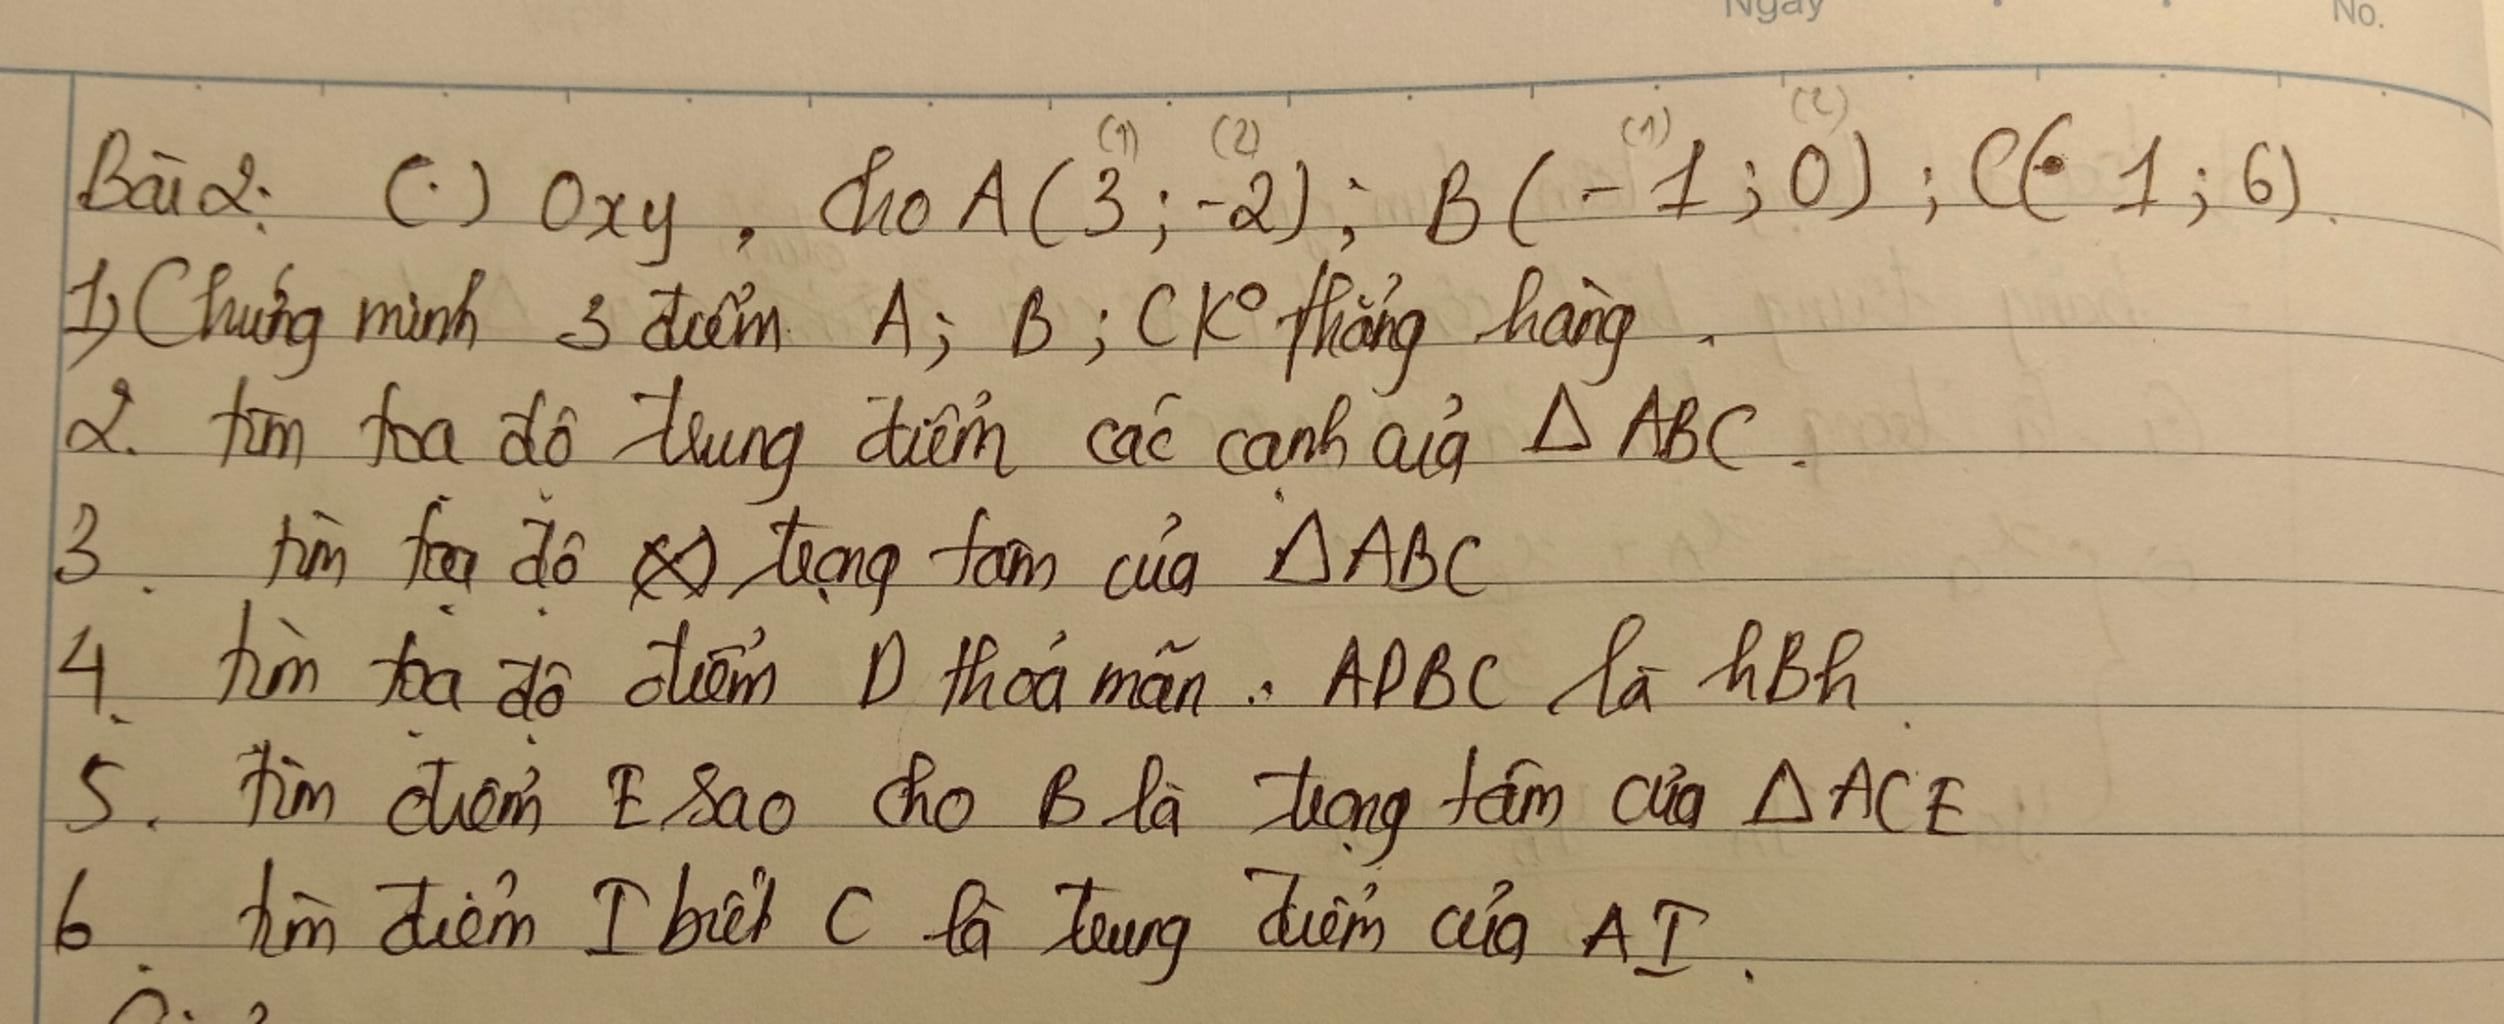 Ngày No.
(1) (2) (1) (2)
Bài 2: (.) Oxy, cho A(3; -2); B(-1; 0); C( 1; 6).
1) Chứng minh 3 điểm A; B; C Kº thẳng hàng.
2. tìm tọa độ trung điểm các cạnh của △ ABC.
3. tìm tọa độ trọng tâm của △ABC
4. tìm tọa độ điểm D thoả mãn: ADBC là hBh.
5. tìm điểm E sao cho B là trọng tâm của △ ACE
6. tìm điểm I biết C là trung điểm của AI.